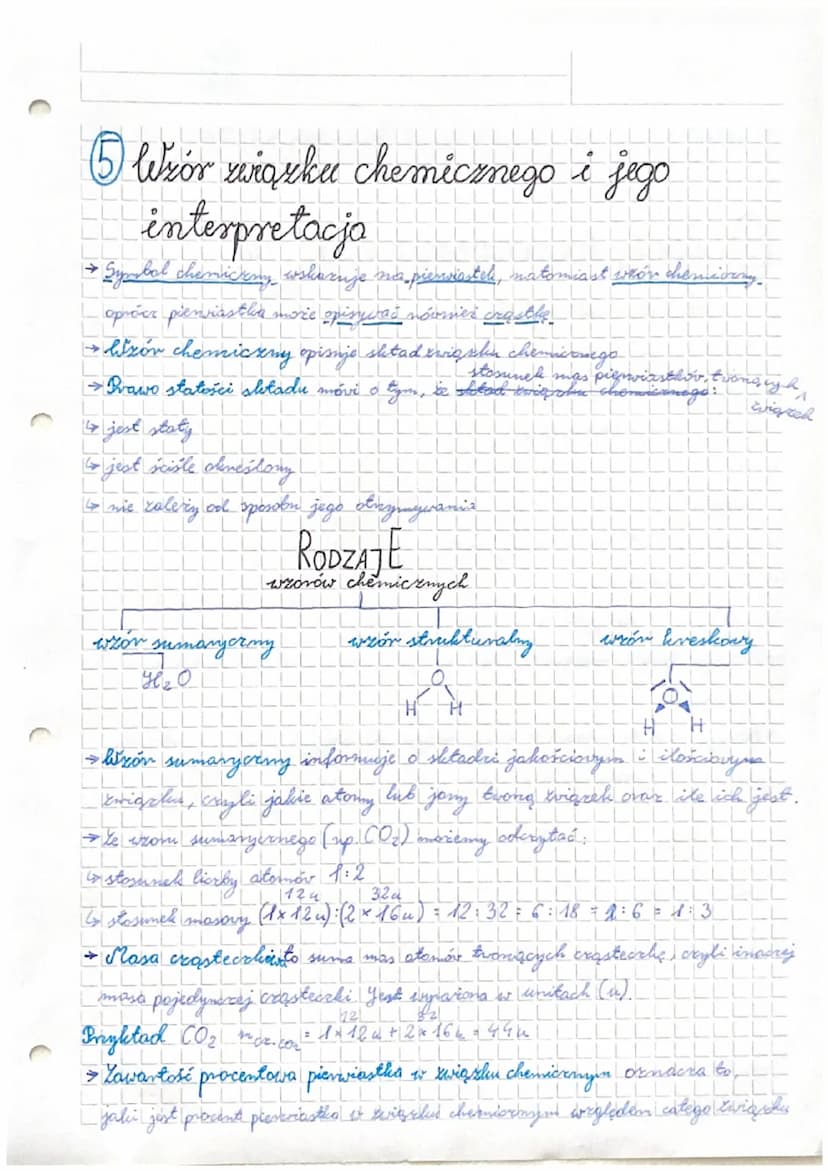 5 Wzór związku chemicznego i jego
interpretacja
→ Symbol chemiczny wskazuje na pierwiastek, natomiast wzór chemiczny
oprócz pierwiastka może opisywać również cząstkę.
→ Wzór chemiczny opisuje skład związku chemicznego
stosunek mas pierwiastków, tworzących
→ Prawo stałości składu mówi o tym, że skład związku chemicznego:
związek
↳ jest stały
↳ jest ściśle określony
↳ nie zależy od sposobu jego otrzymywania
RODZAJE
wzorów chemicznych
wzór sumaryczny wzór strukturalny wzór kreskowy
H₂O O O
H H H H
→ Wzór sumaryczny informuje o składzie jakościowym i ilościowym
związku, czyli jakie atomy lub jony tworzą związek oraz ile ich jest.
→ Ze wzoru sumarycznego (np. CO₂) możemy odczytać:
↳ stosunek liczby atomów 1:2
12u 32u
↳ stosunek masowy (1×12u):(2×16u) = 12:32 = 6:18 = 2:6 = 1:3
→ Masa cząsteczki to suma mas atomów tworzących cząsteczkę, czyli inaczej
masa pojedynczej cząsteczki. Jest wyrażona w unitach (u).
12 32
Przykład CO₂ m cz. CO₂ = 1×12u + 2×16u = 44u
→ Zawartość procentowa pierwiastka w związku chemicznym oznacza to,
jaki jest procent pierwiastka w związku chemicznym względem całego związku